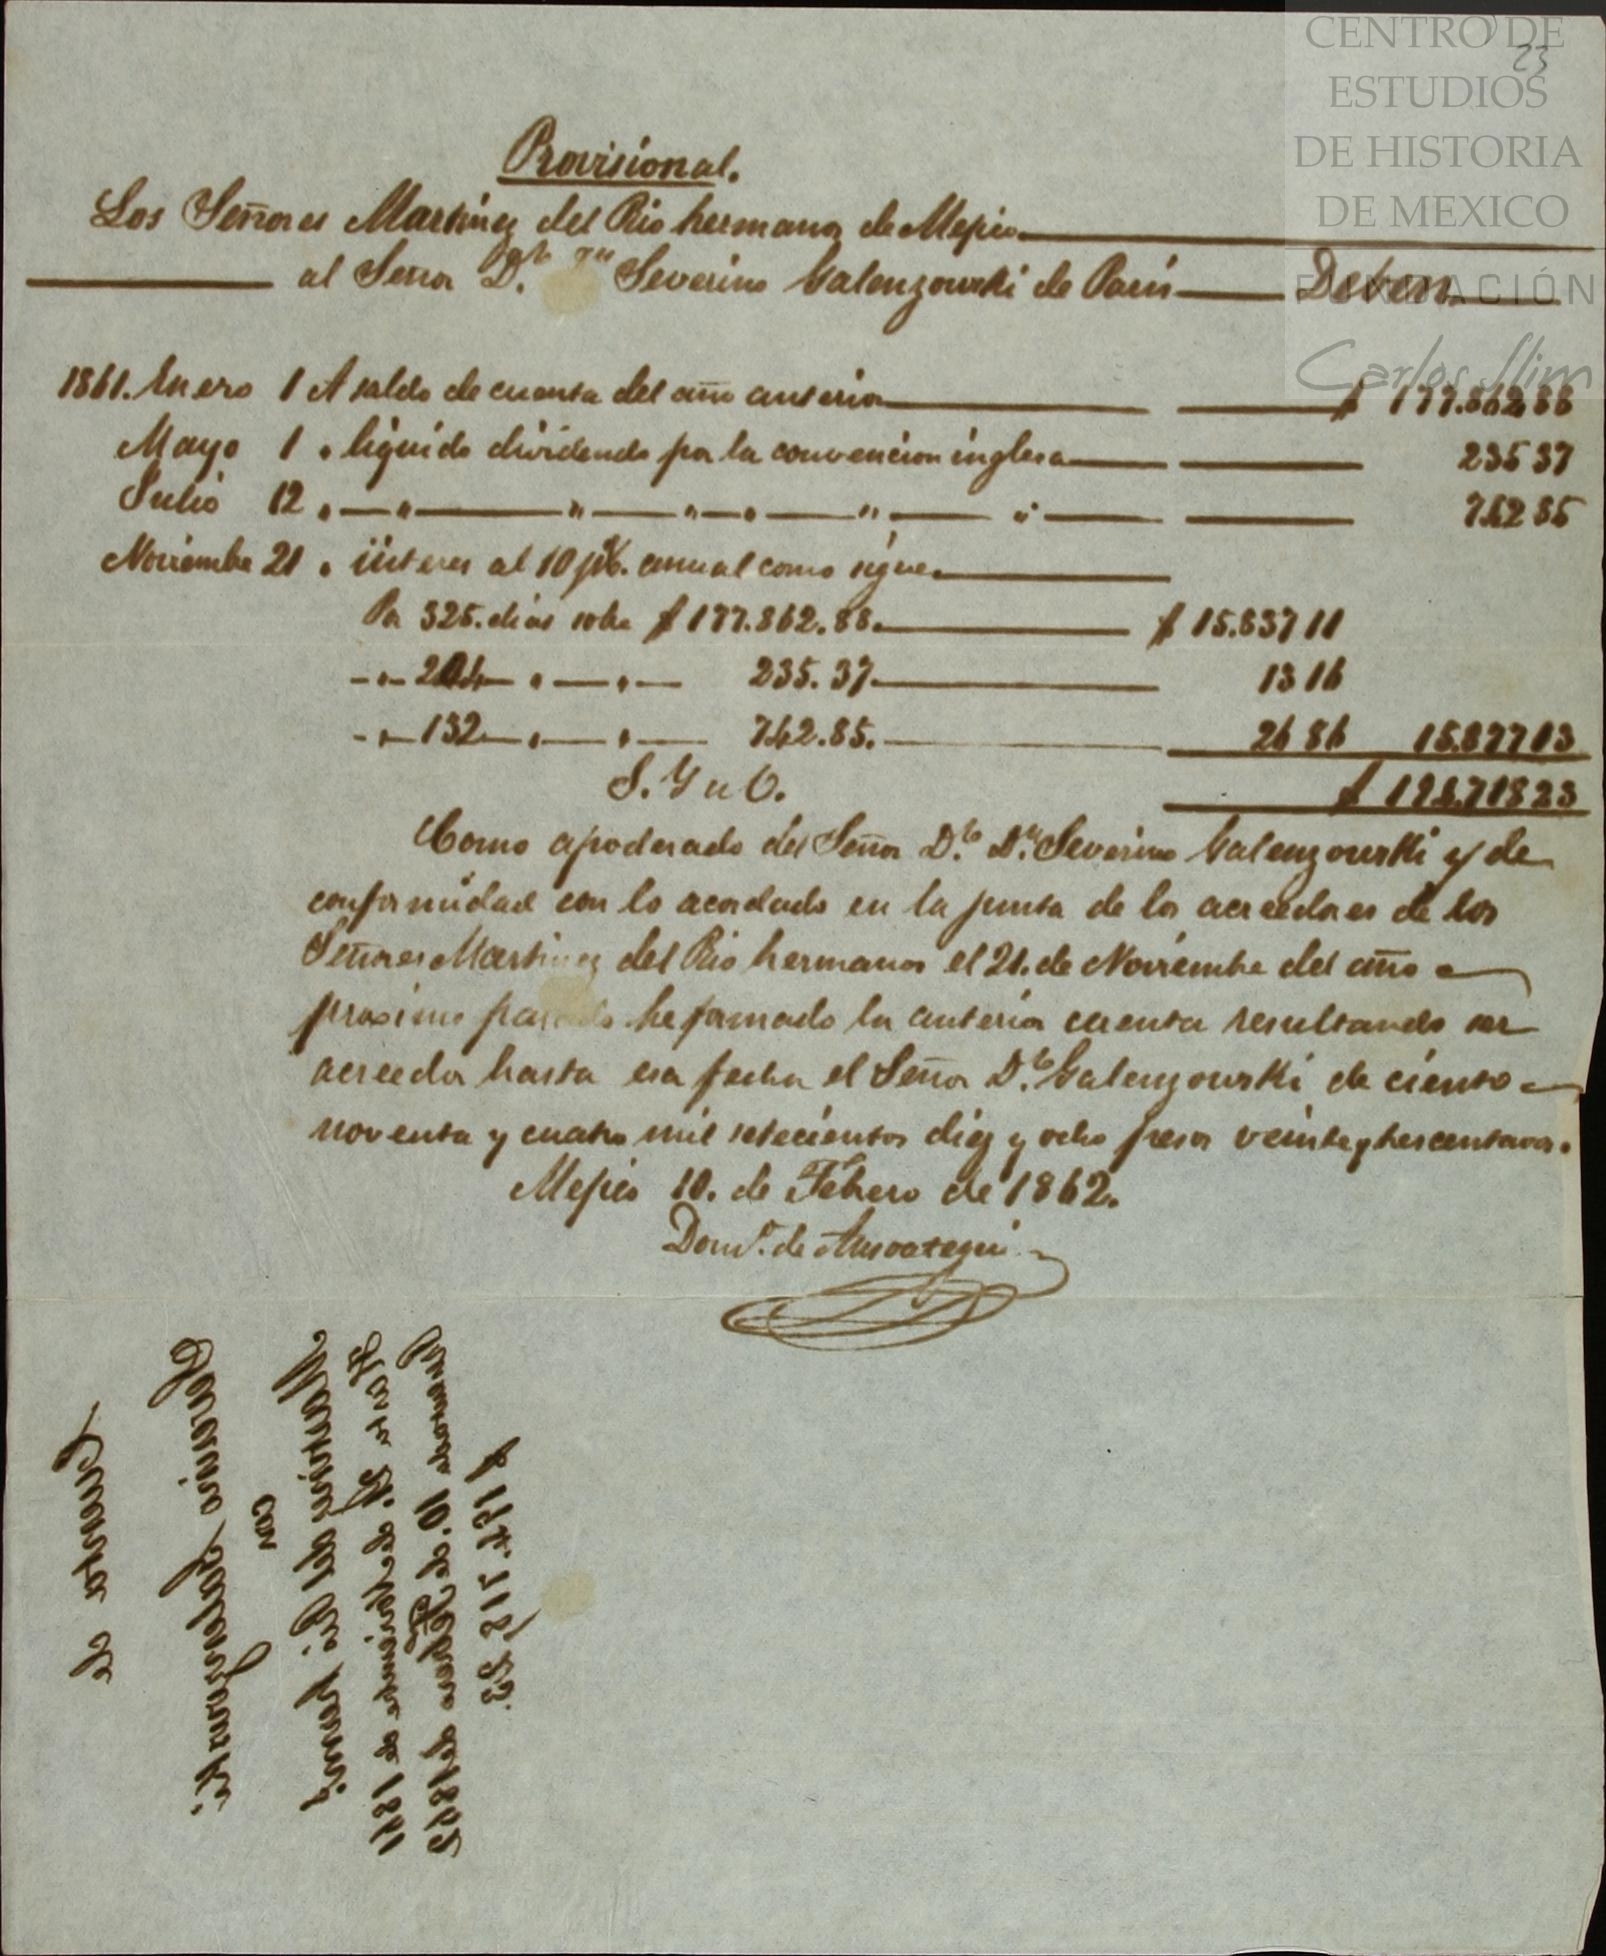 CENTRO DE
ESTUDIOS
DE HISTORIA
DE MEXICO
FUNDACIÓN
Carlos Slim
23
Provisional.
Los Señores Martinez del Rio hermanos de Mejico
al Señor D.r Dn Severino Galenzowski de Paris Deben
1861. Enero 1 A saldo de cuenta del año anterior $ 177.862 88
Mayo 1 " liquido dividendo por la convencion inglesa 235 37
Julio 12 " " " " " " " 742 85
Noviembre 21 " interes al 10 p%. anual como sigue
Por 325. dias sobre $ 177.862.88. $ 15.837 11
" 204 " " 235.37. 13 16
" 132 " " 742.85. 26 86 15.877 13
S. Y u O. $ 194.718 23
Como apoderado del Señor D.r Dn Severino Galenzowski y de
conformidad con lo acordado en la junta de los acreedores de los
Señores Martinez del Rio hermanos el 21. de Noviembre del año
proximo pasado he formado la anterior cuenta resultando ser
acreedor hasta esa fecha el Señor D.r Galenzowski de ciento
noventa y cuatro mil setecientos diez y ocho pesos veinte y tres centavos.
Mejico 10. de Febrero de 1862.
Dom.o de Ansoategui
Cuenta de
Severino Galenzowski.
con
Martinez del Rio herman.s
de Noviembre de 1861
Firmada 10. de Febrero de 1862
$ 194.718,23.